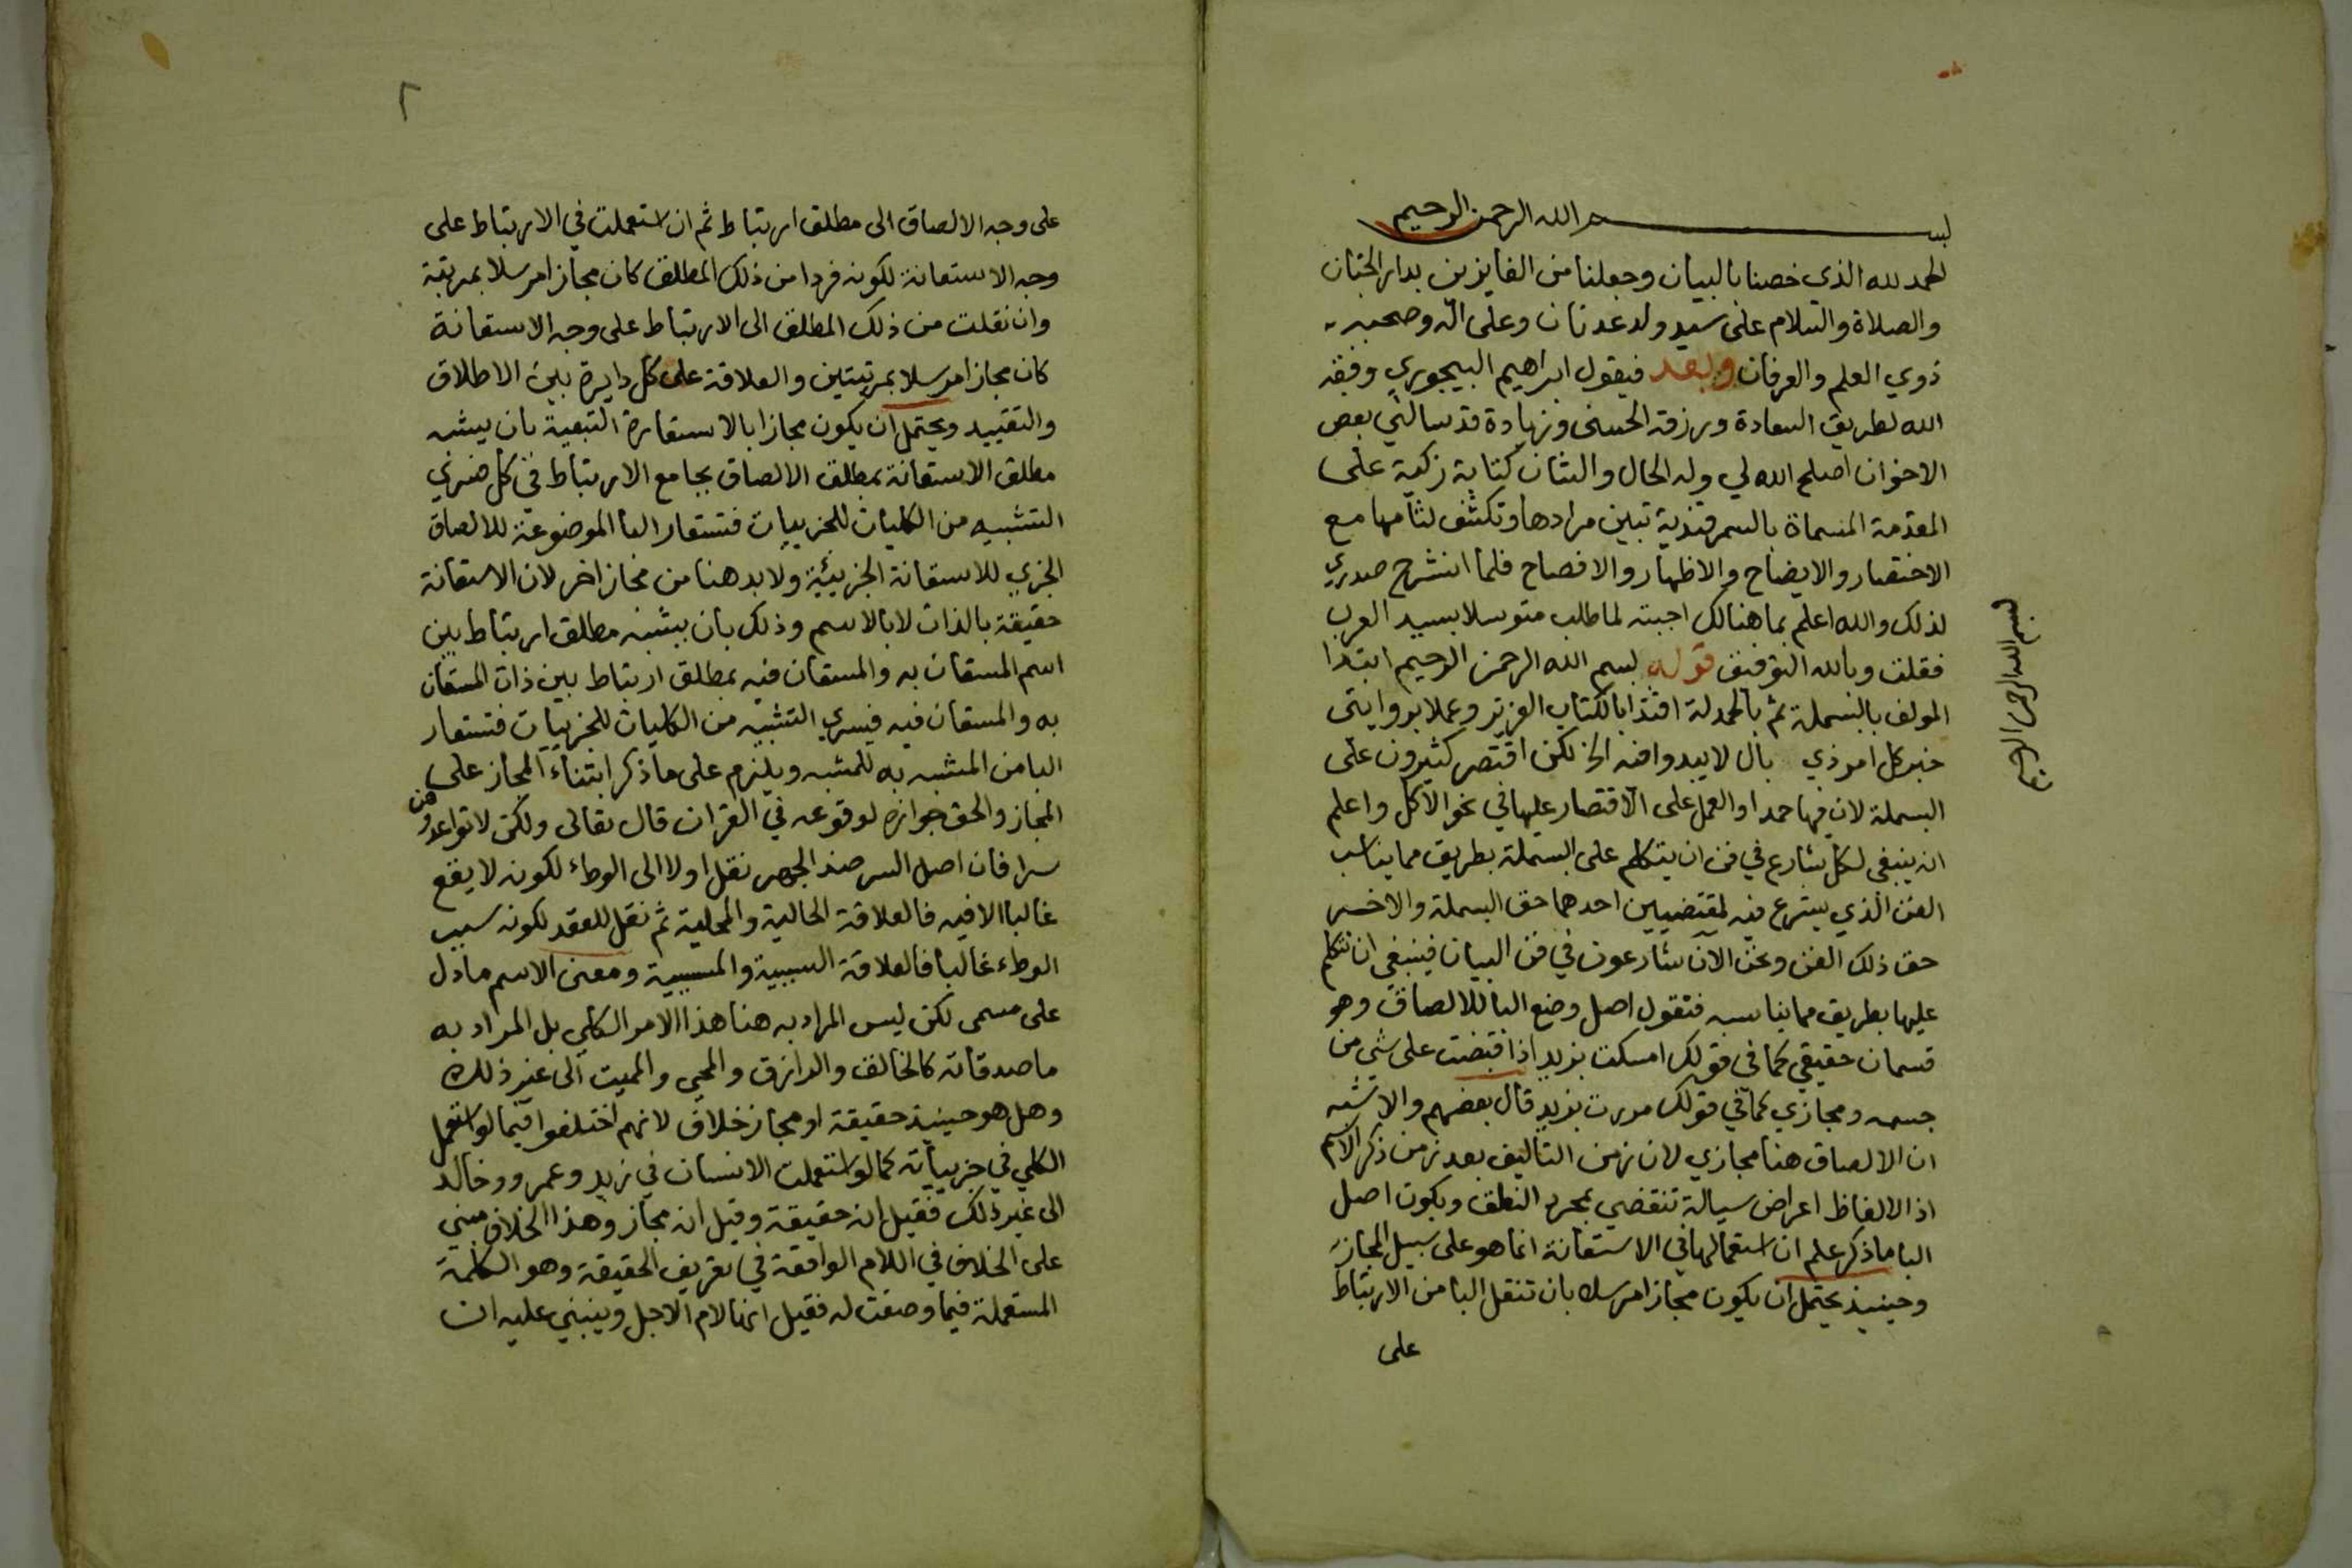 بسم الله الرحمن الرحيم
الحمد لله الذي خصنا بالبيان وجعلنا من الفايزين بدار الجنان
والصلاة والسلام على سيد ولد عدنان وعلى اله وصحبه
ذوي العلم والعرفان وبعد فيقول ابراهيم البيجوري وفقه
الله لطريق السعادة ورزقه الحسنى وزيادة قد سالني بعض
الاخوان اصلح الله لي وله الحال والشان كتابة زكية على
المقدمة المسماة بالسمرقندية تبين مرادها وتكشف لثامها مع
الاختصار والايضاح والاظهار والافصاح فلما انشرح صدري
لذلك والله اعلم بما هنالك اجبته لما طلب متوسلا بسيد العرب
فقلت وبالله التوفيق قوله بسم الله الرحمن الرحيم ابتدا
المولف بالبسملة ثم بالحمدلة اقتدا بالكتاب العزيز وعملا بروايتي
خبر كل امر ذي بال لا يبدوا فيه الخ لكن اقتصر كثيرون على
البسملة لان فيها حمدا والعمل على الاقتصار عليها في نحو الاكل واعلم
انه ينبغي لكل شارع في فن ان يتكلم على البسملة بطريق مما يناسب
الفن الذي يشرع فيه لمقتضيين احدهما حق البسملة والاخر
حق ذلك الفن ونحن الان شارعون في فن البيان فينبغي ان نتكلم
عليها بطريق مما يناسبه فنقول اصل وضع البا للالصاق وهو
قسمان حقيقي كما في قولك امسكت بزيد اذا قبضت على شي من
جسمه ومجازي كما في قولك مررت بزيد قال بعضهم والاشبه
ان الالصاق هنا مجازي لان زمن التاليف بعد زمن ذكر الاسم
اذ الالفاظ اعراض سيالة تنقضي بمجرد النطق وبكون اصل
البا ما ذكر علم ان استعمالها في الاستعانة انما هو على سبيل المجاز
وحينيذ يحتمل ان يكون مجازا مرسلا بان تنقل البا من الارتباط
على
بسم الله الرحمن الرحيم
٢
على وجه الالصاق الى مطلق ارتباط ثم ان استعملت في الارتباط على
وجه الاستعانة لكونه فردا من ذلك المطلق كان مجازا مرسلا بمرتبة
وان نقلت من ذلك المطلق الى الارتباط على وجه الاستعانة
كان مجازا مرسلا بمرتبتين والعلاقة على كل دايرة بين الاطلاق
والتقييد ويحتمل ان يكون مجازا بالاستعارة التبعية بان يشبه
مطلق الاستعانة بمطلق الالصاق بجامع الارتباط في كل فيسري
التشبيه من الكليات للجزييات فتستعار البا الموضوعة للالصاق
الجزي للاستعانة الجزيئية ولا بد هنا من مجاز اخر لان الاستعانة
حقيقة بالذات لا بالاسم وذلك بان يشبه مطلق ارتباط بين
اسم المستعان به والمستعان فيه بمطلق ارتباط بين ذات المستعان
به والمستعان فيه فيسري التشبيه من الكليات للجزييات فتستعار
البا من المشبه به للمشبه ويلزم على ما ذكر ابتناء المجاز على
المجاز والحق جوازه لوقوعه في القران قال تعالى ولكن لا تواعدوهن
سرا فان اصل السر ضد الجهر نقل اولا الى الوطء لكونه لا يقع
غالبا الا فيه فالعلاقة الحالية والمحلية ثم نقل للعقد لكونه سبب
الوطء غالبا فالعلاقة السببية والمسببية ومعنى الاسم ما دل
على مسمى لكن ليس المراد به هنا هذا الامر الكلي بل المراد به
ما صدقاته كالخالق والرازق والمحي والمميت الى غير ذلك
وهل هو حينيذ حقيقة او مجاز خلاف لانهم اختلفوا فيما لو استعمل
الكلي في جزيياته كما لو استعملت الانسان في زيد وعمرو وخالد
الى غير ذلك فقيل انه حقيقة وقيل انه مجاز وهذا الخلاف مبني
على الخلاف في اللام الواقعة في تعريف الحقيقة وهو الكلمة
المستعملة فيما وضعت له فقيل انها لام الاجل وينبني عليه ان